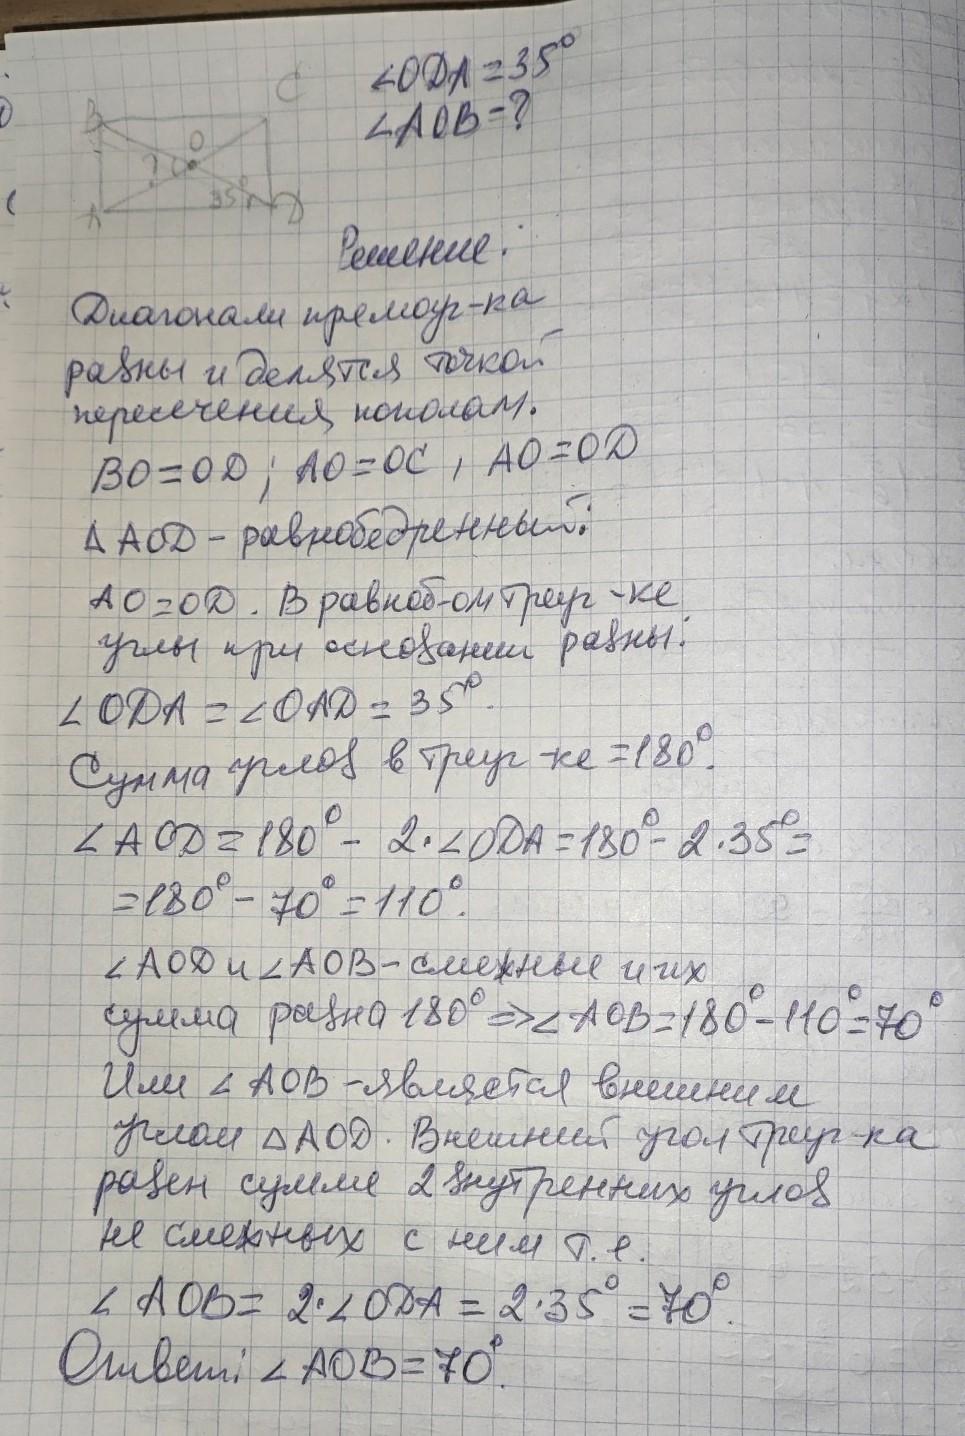 ∠ODA = 35°
∠AOB = ?
B
C
O
?
35°
A
D
Решение:
Диагонали прямоуг-ка
равны и делятся точкой
пересечения пополам.
BO = OD; AO = OC, AO = OD
△ AOD - равнобедренный:
AO = OD. В равноб-ом треуг-ке
углы при основании равны:
∠ODA = ∠OAD = 35°.
Сумма углов в треуг-ке = 180°.
∠AOD = 180° - 2·∠ODA = 180° - 2·35° =
= 180° - 70° = 110°.
∠AOD и ∠AOB - смежные и их
сумма равна 180° => ∠AOB = 180° - 110° = 70°
Или ∠AOB - является внешним
углом △AOD. Внешний угол треуг-ка
равен сумме 2 внутренних углов
не смежных с ним т.е.
∠AOB = 2·∠ODA = 2·35° = 70°.
Ответ: ∠AOB = 70°.